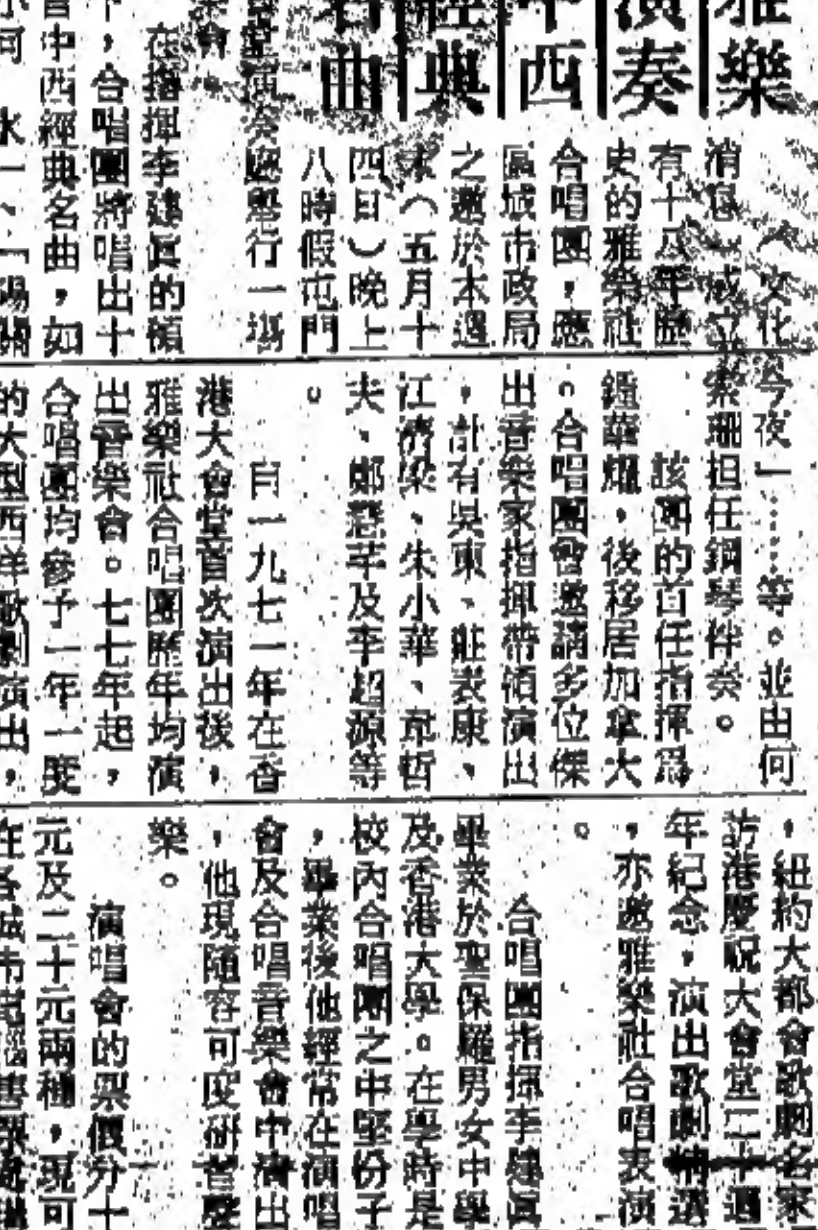 雅樂
演奏
中西
經典
名曲
文化
消息 成立
有十八年歷
史的雅樂社
合唱團,應
區城市政局
之邀於本週
末(五月十
四日)晚上
八時假屯門
堂演奏廳舉行一場
會
在指揮李建眞的領
下,合唱團將唱出十
中西經典名曲,如
今夜」……等。並由何
索珊担任鋼琴伴奏。
該團的首任指揮爲
鍾華耀,後移居加拿大
。合唱團曾邀請多位傑
出音樂家指揮帶領演出
,計有吳東、莊表康、
江樺梁、朱小華、韋哲
夫、鄭慧芊及李超源等
。
自一九七一年在香
港大會堂首次演出後,
雅樂社合唱團歷年均演
出音樂會。七七年起,
合唱團均參予一年一度
的大型西洋歌劇演出,
,紐約大都會歌劇名家
訪港慶祝大會堂二十週
年紀念,演出歌劇精選
,亦邀雅樂社合唱表演
。
合唱團指揮李建眞
畢業於聖保羅男女中學
及香港大學。在學時是
校內合唱團之中堅份子
,畢業後他經常在演唱
會及合唱音樂會中演出
,他現隨容可度研習聲
樂。
演唱會的票價分十
元及二十元兩種,現可
在各城市電腦售票處購